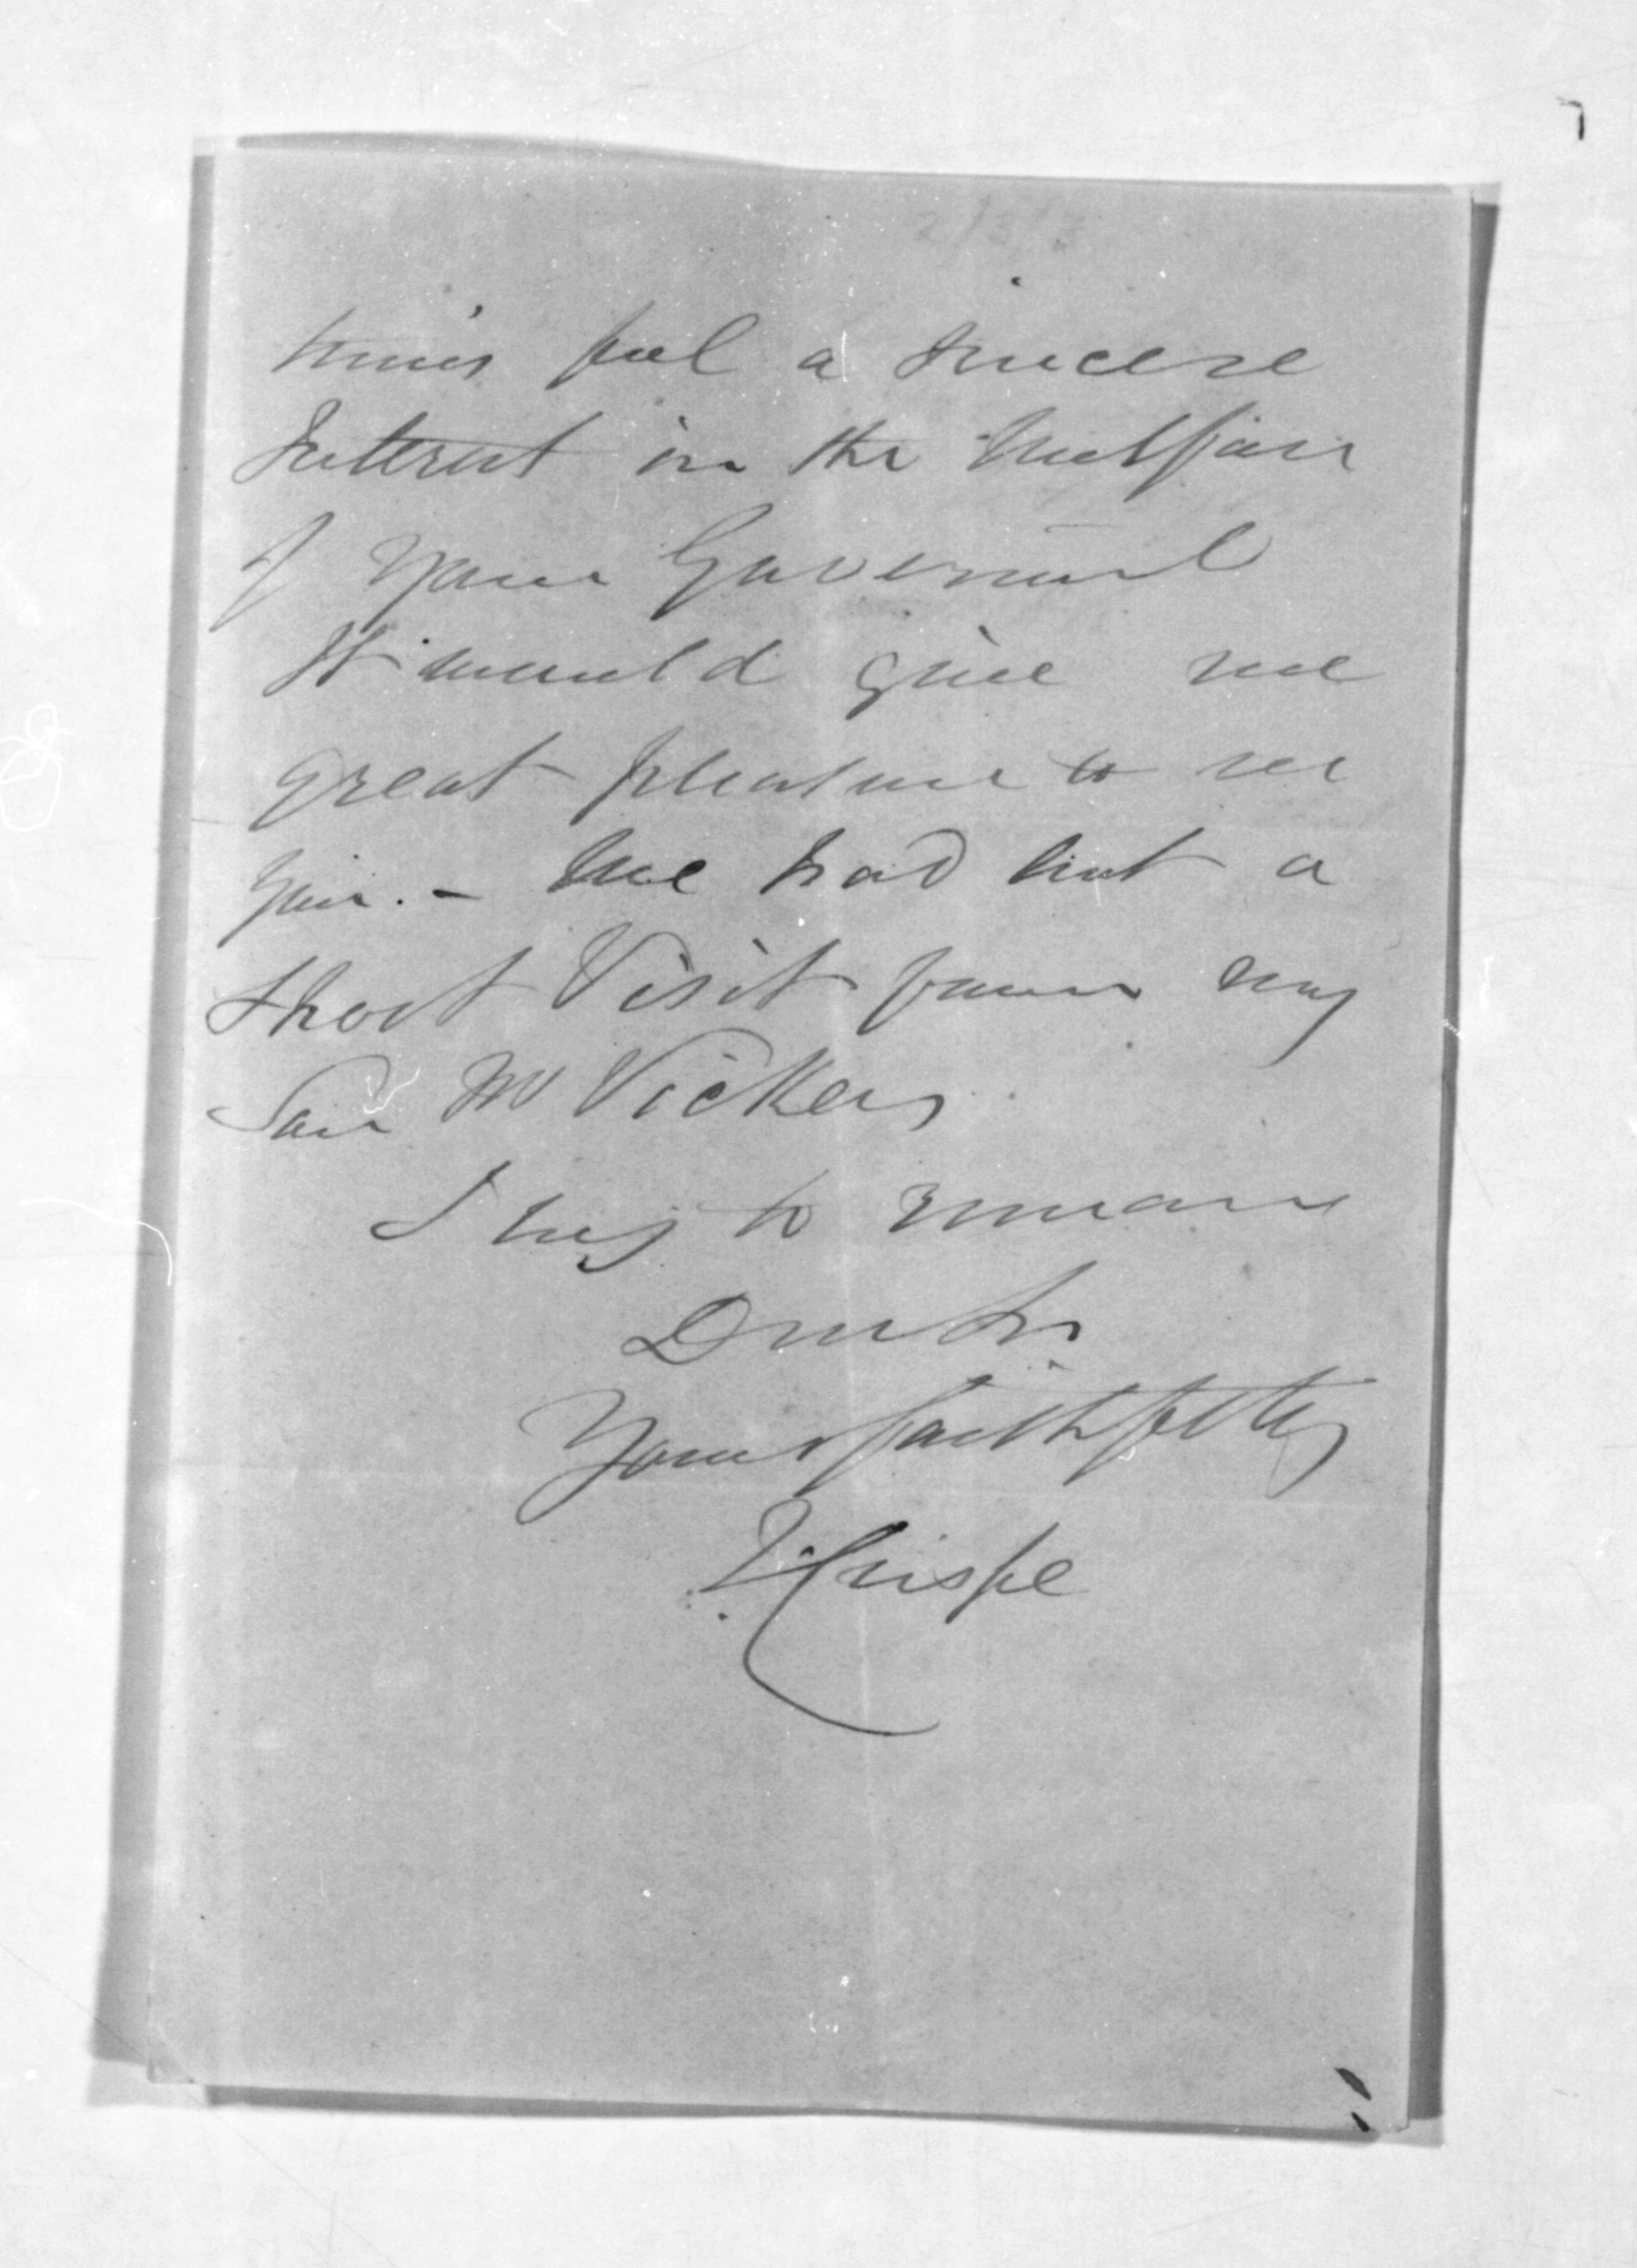 times feel a sincere
Interest in the Welfare
of your Government
It would give me
great pleasure to see
you. - We had but a
short Visit from my
Son Mr Vickers
I beg to remain
Dear Sir
Yours faithfully
Crispe